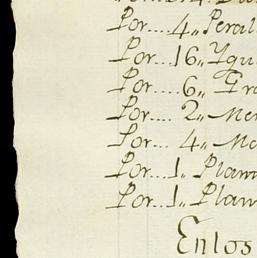 Por.... 4,, Peral
Por.... 16,, Ygu
Por.... 6,, Gra
Por.... 2,, Mem
Por.... 4,, Me
Por.... 1,, Plan
Por.... 1,, Plan
Enlos